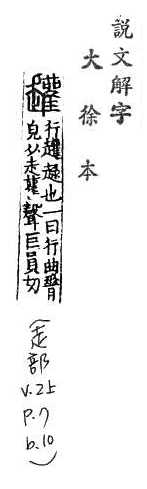 説文解字
大徐本
趯
行趯趢也一曰行曲脊
皃从走雚聲巨員切
(走部
v.2上
p.7
b.10)